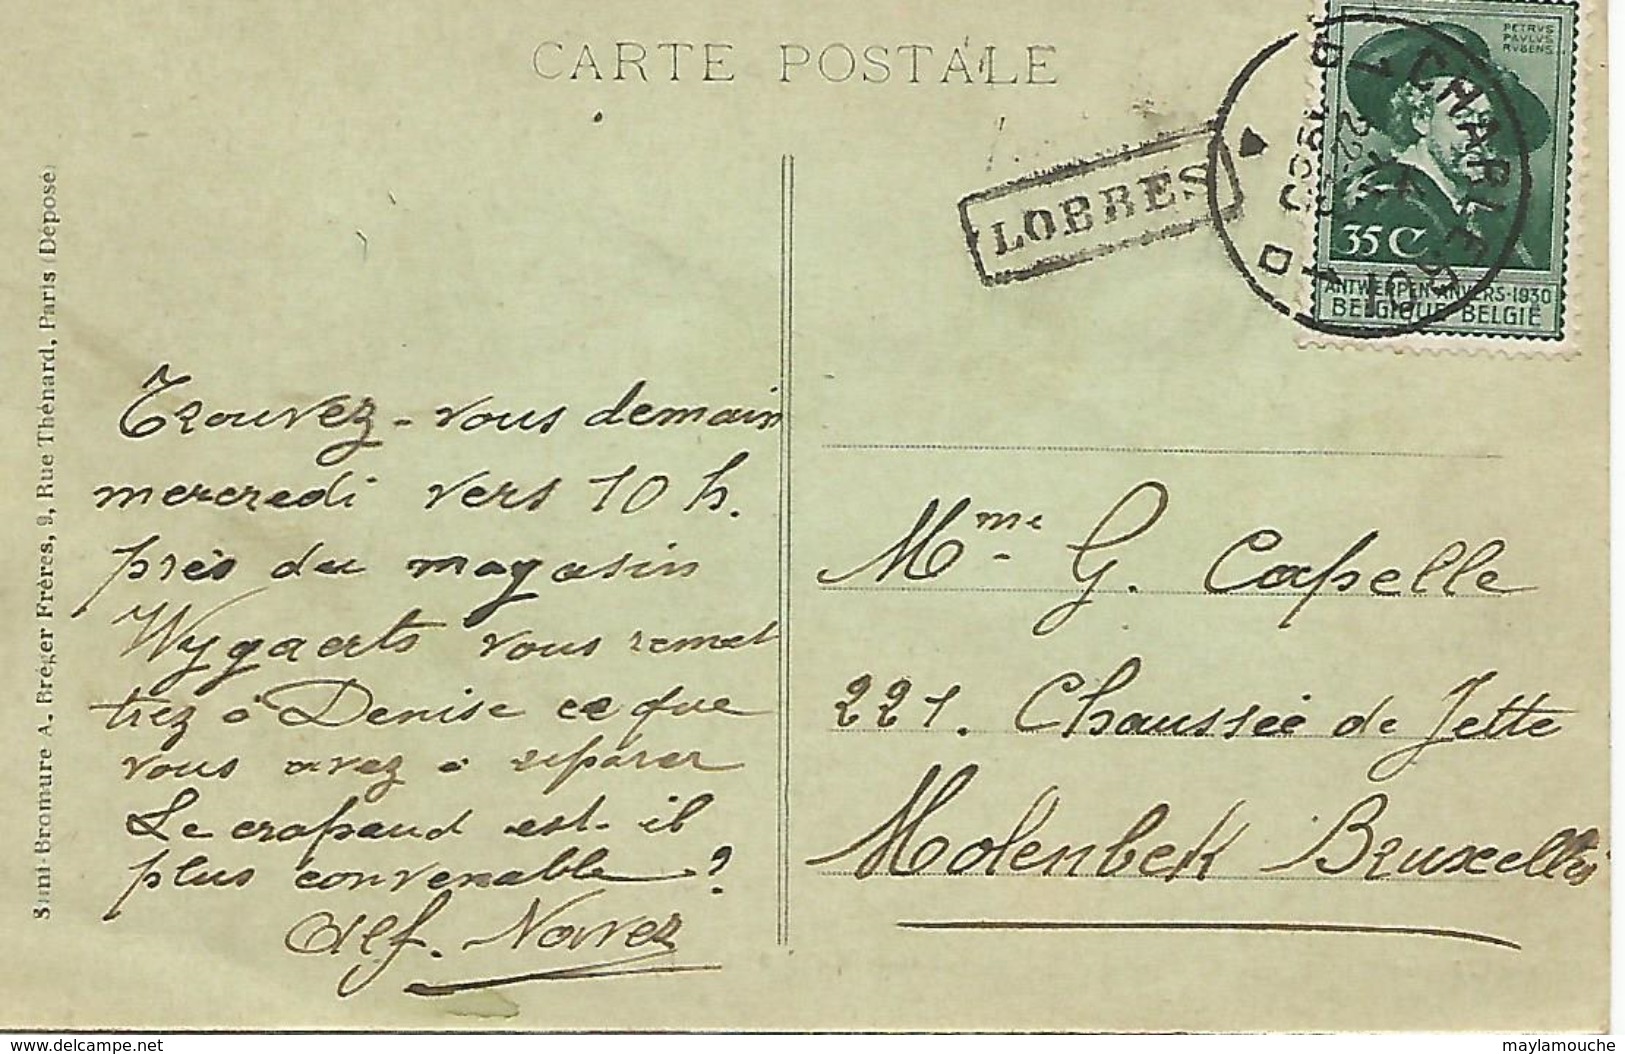 CARTE POSTALE
PETRVS
PAVLVS
RVBENS
35 C
ANTWERPEN-ANVERS-1930
BELGIQUE-BELGIË
CHARLEROI
1930
LOBBES
Simi-Bromure A. Bréger Frères, 9, Rue Thénard, Paris (Déposé)
Trouvez-vous demain
mercredi vers 10 h.
près du magasin
Wygaerts vous remet
trez à Denise ce que
vous avez à réparer
Le crapaud est-il
plus convenable ?
Alf. Navez
Mme G. Capelle
221. Chaussée de Jette
Molenbeek Bruxelles
delcampe.net
maylamouche